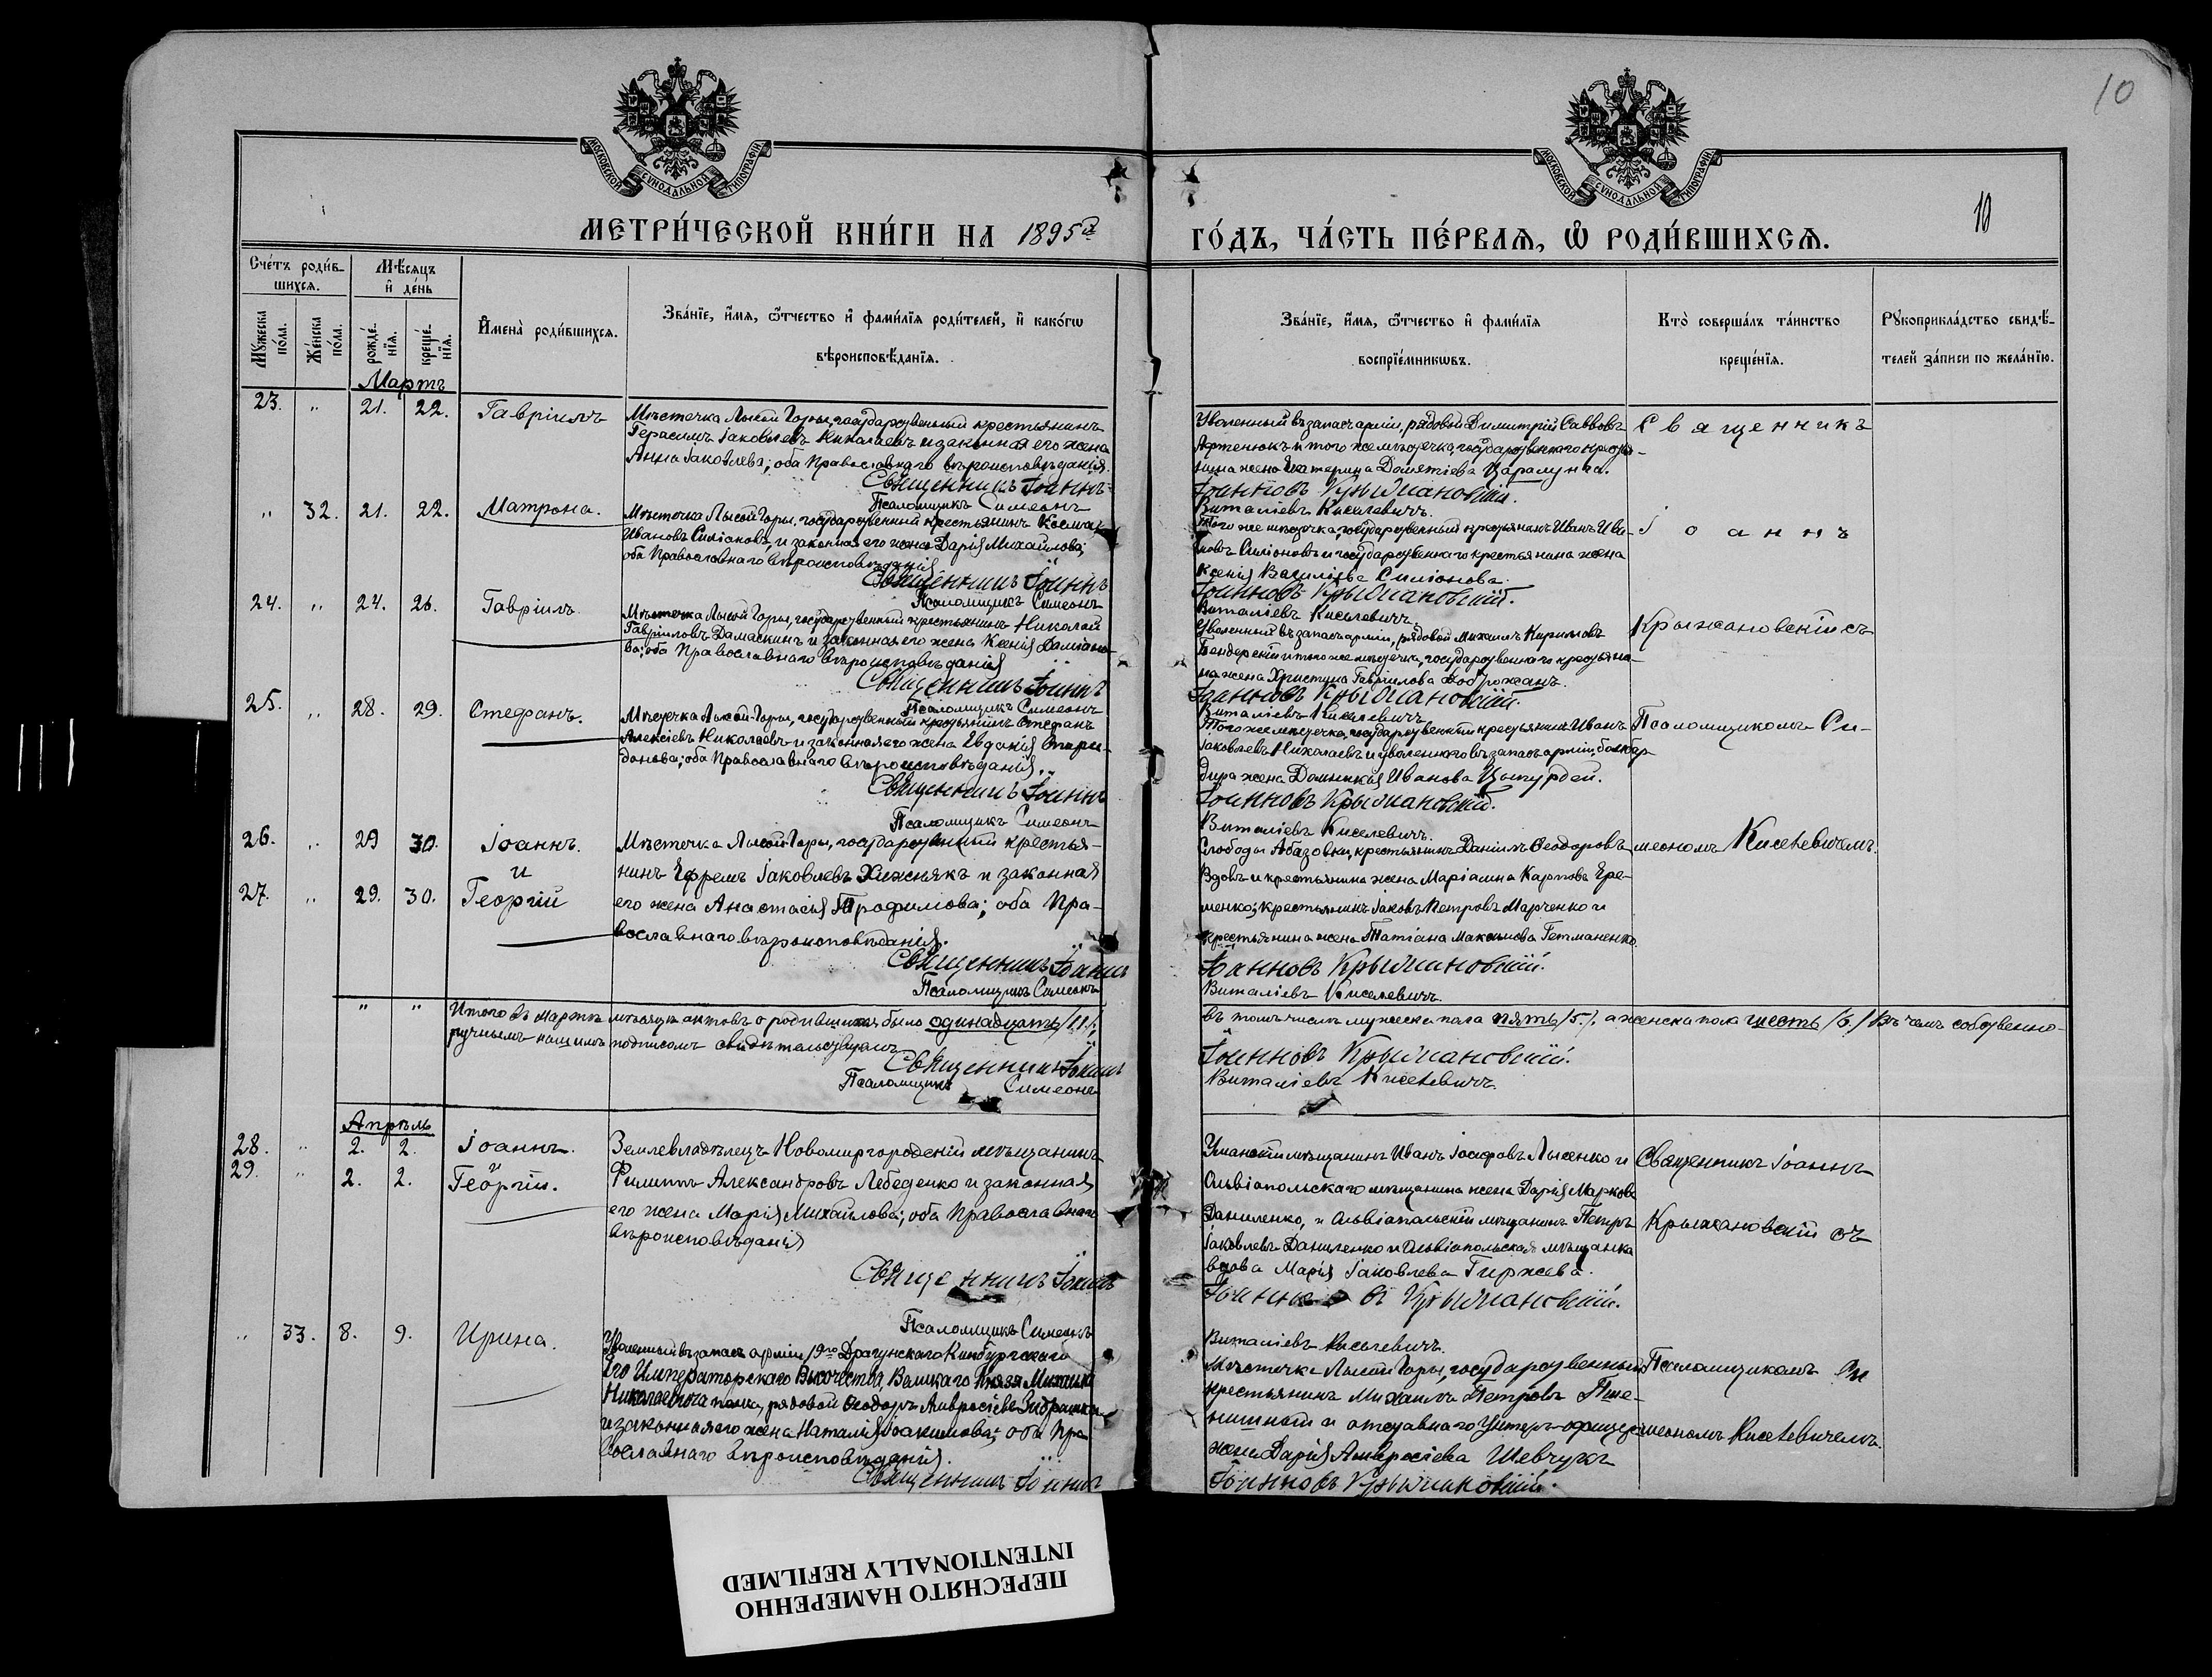 10
МОСКОВСКОЙ СѴНОДАЛЬНОЙ ТИПОГРАФІИ.
МОСКОВСКОЙ СѴНОДАЛЬНОЙ ТИПОГРАФІИ.
МЕТРИ́ЧЕСКОЙ КНИ́ГИ НА 1895й
ГО́ДЪ, ЧА́СТЬ ПЕ́РВАЯ, Ѡ РОДИ́ВШИХСЯ.
10
Сче́тъ роди́в-
шихся.
Мѣ́сяцъ
и҆ де́нь
Мꙋ́жеска по́ла.
Же́нска по́ла.
рожде́-
нїя.
креще́-
нїя.
И҆мена̀ роди́вшихся.
Зва́нїе, и҆́мя, ѻ҆́тчество и҆ фами́лїя роди́телей, и҆ како́гѡ
вѣроисповѣ́данїя.
Зва́нїе, и҆́мя, ѻ҆́тчество и҆ фами́лїя
воспрїе́мникѡвъ.
Кто̀ соверша́лъ та́инство
креще́нїя.
Рꙋкоприкла́дство свидѣ́-
телей за́писи по жела́нїю.
Мартъ
23. " 21. 22. Гавріилъ
Мѣстечка Лысой Горы, государственный крестьянинъ
Герасимъ Іаковлевъ Николаевъ и законная его жена
Анна Іаковлева; оба Православнаго вѣроисповѣданія.
Священникъ Іоаннъ
Псаломщикъ Симеонъ
Уволенный въ запасъ арміи, рядовой Димитрій Саввовъ
Артенюкъ и того же мѣстечка, государственнаго крестья-
нина жена Екатерина Дометіева Царалунга.
Іоанновъ Крыжановскій.
Виталіевъ Киселевичъ.
Священникъ
" 32. 21. 22. Матрона.
Мѣстечка Лысой Горы, государственный крестьянинъ Косма
Ивановъ Симіоновъ, и законная его жена Дарія Михайлова;
оба Православнаго вѣроисповѣданія
Священникъ Іоаннъ
Псаломщикъ Симеонъ
Того же мѣстечка, государственный крестьянинъ Иванъ Ива-
новъ Симіоновъ и государственнаго крестьянина жена
Ксенія Василіева Симіонова.
Іоанновъ Крыжановскій.
Виталіевъ Киселевичъ.
Іоаннъ
24. " 24. 26. Гавріилъ
Мѣстечка Лысой Горы, государственный крестьянинъ Николай
Гавриловъ Дамаскинъ и законная его жена Ксенія Даміано-
ва; оба Православнаго вѣроисповѣданія
Священникъ Іоаннъ
Псаломщикъ Симеонъ
Уволенный въ запасъ арміи, рядовой Михаилъ Кириловъ
Бендерскій и того же мѣстечка, государственнаго крестьяни-
на жена Христина Гавріилова Доброжанъ.
Іоанновъ Крыжановскій.
Виталіевъ Киселевичъ
Крыжановскій съ
25. " 28. 29. Стефанъ.
Мѣстечка Лысой-Горы, государственный крестьянинъ Стефанъ
Алексіевъ Николаевъ и законная его жена Евдокія Спири-
донова; оба Православнаго вѣроисповѣданія.
Священникъ Іоаннъ
Псаломщикъ Симеонъ
Того же мѣстечка, государственный крестьянинъ Иванъ
Іаковлевъ Николаевъ и уволеннаго въ запасъ арміи, бомбар-
дира жена Домникія Иванова Цыпурдей.
Іоанновъ Крыжановскій.
Виталіевъ Киселевичъ.
Псаломщикомъ Си-
26. " 29 30. Іоаннъ.
и
27. " 29. 30. Георгій
Мѣстечка Лысой-Горы, государственный крестья-
нинъ Ефремъ Іаковлевъ Хижнякъ и законная
его жена Анастасія Трофимова; оба Пра-
вославнаго вѣроисповѣданія.
Священникъ Іоаннъ
Псаломщикъ Симеонъ
Слободы Абазовки, крестьянинъ Даніилъ Ѳеодоровъ
Вдовъ и крестьянина жена Маріамна Карпова Ере-
менко; крестьянинъ Іаковъ Петровъ Марченко и
крестьянина жена Татіана Максимова Гетманенко.
Іоанновъ Крыжановскій.
Виталіевъ Киселевичъ.
меономъ Киселевичемъ.
" " Итого въ мартѣ мѣсяцѣ актовъ о родившихся было одинадцать /11/.
въ томъ числѣ мужеска пола пять /5./. а женска пола шесть /6./ Въ чемъ собственно-
ручнымъ нашимъ подписомъ свидѣтельствуемъ
Священникъ Іоаннъ
Псаломщикъ Симеонъ
Іоанновъ Крыжановскій.
Виталіевъ Киселевичъ.
Апрѣль
28. " 2. 2. Іоаннъ.
и
29. " 2. 2. Георгій.
Землевладѣлецъ Новомиргородскій мѣщанинъ
Филиппъ Александровъ Лебеденко и законная
его жена Марія Михайлова; оба Православнаго
вѣроисповѣданія
Священникъ Іоаннъ
Псаломщикъ Симеонъ
Уманскій мѣщанинъ Иванъ Іосифовъ Лысенко и
Ольвіопольскаго мѣщанина жена Дарія Маркова
Даниленко, и Ольвіопольскій мѣщанинъ Петръ
Іаковлевъ Даниленко и Ольвіопольская мѣщанка
вдова Марія Іаковлева Гиржева.
Іоанновъ Крыжановскій.
Виталіевъ Киселевичъ.
Священникъ Іоаннъ
Крыжановскій съ
" 33. 8. 9. Ирина.
Уволенный въ запасъ арміи 19го Драгунскаго Кинбургскаго
Его Императорскаго Высочества, Великаго Князя Михаила
Николаевича полка, рядовой Ѳеодоръ Амвросіевъ
и законная его жена Наталія Іоакимова; оба Пра
вославнаго вѣроисповѣданія.
Священникъ Іоаннъ
Мѣстечка Лысой Горы, государственный
крестьянинъ Михаилъ Петровъ Пше-
ничный и отставнаго унтеръ-офицера
жена Дарія Амвросіева Шевчукъ
Іоанновъ Крыжановскій.
Псаломщикомъ Си
меономъ Киселевичемъ.
ПЕРЕСНЯТО НАМЕРЕННО
INTENTIONALLY REFILMED